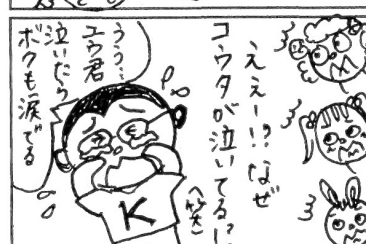 ええー!?なぜ
コウタが泣いてる!?
(笑)
うう…
ユウ君
泣いたら
ボクも涙でる
K